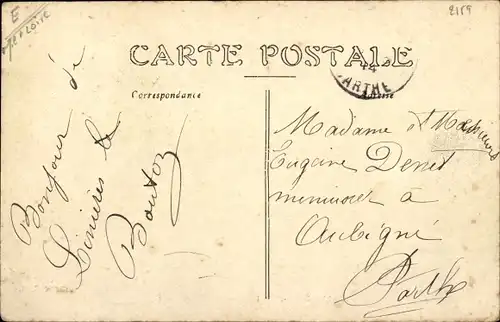 E
2159
CARTE POSTALE
14
ARTHE
Correspondance
Adresse
Bonjour de
Linières le
Bouton
Madame et Monsieur
Eugène Denis
menuisier à
Aubigné
Sarthe